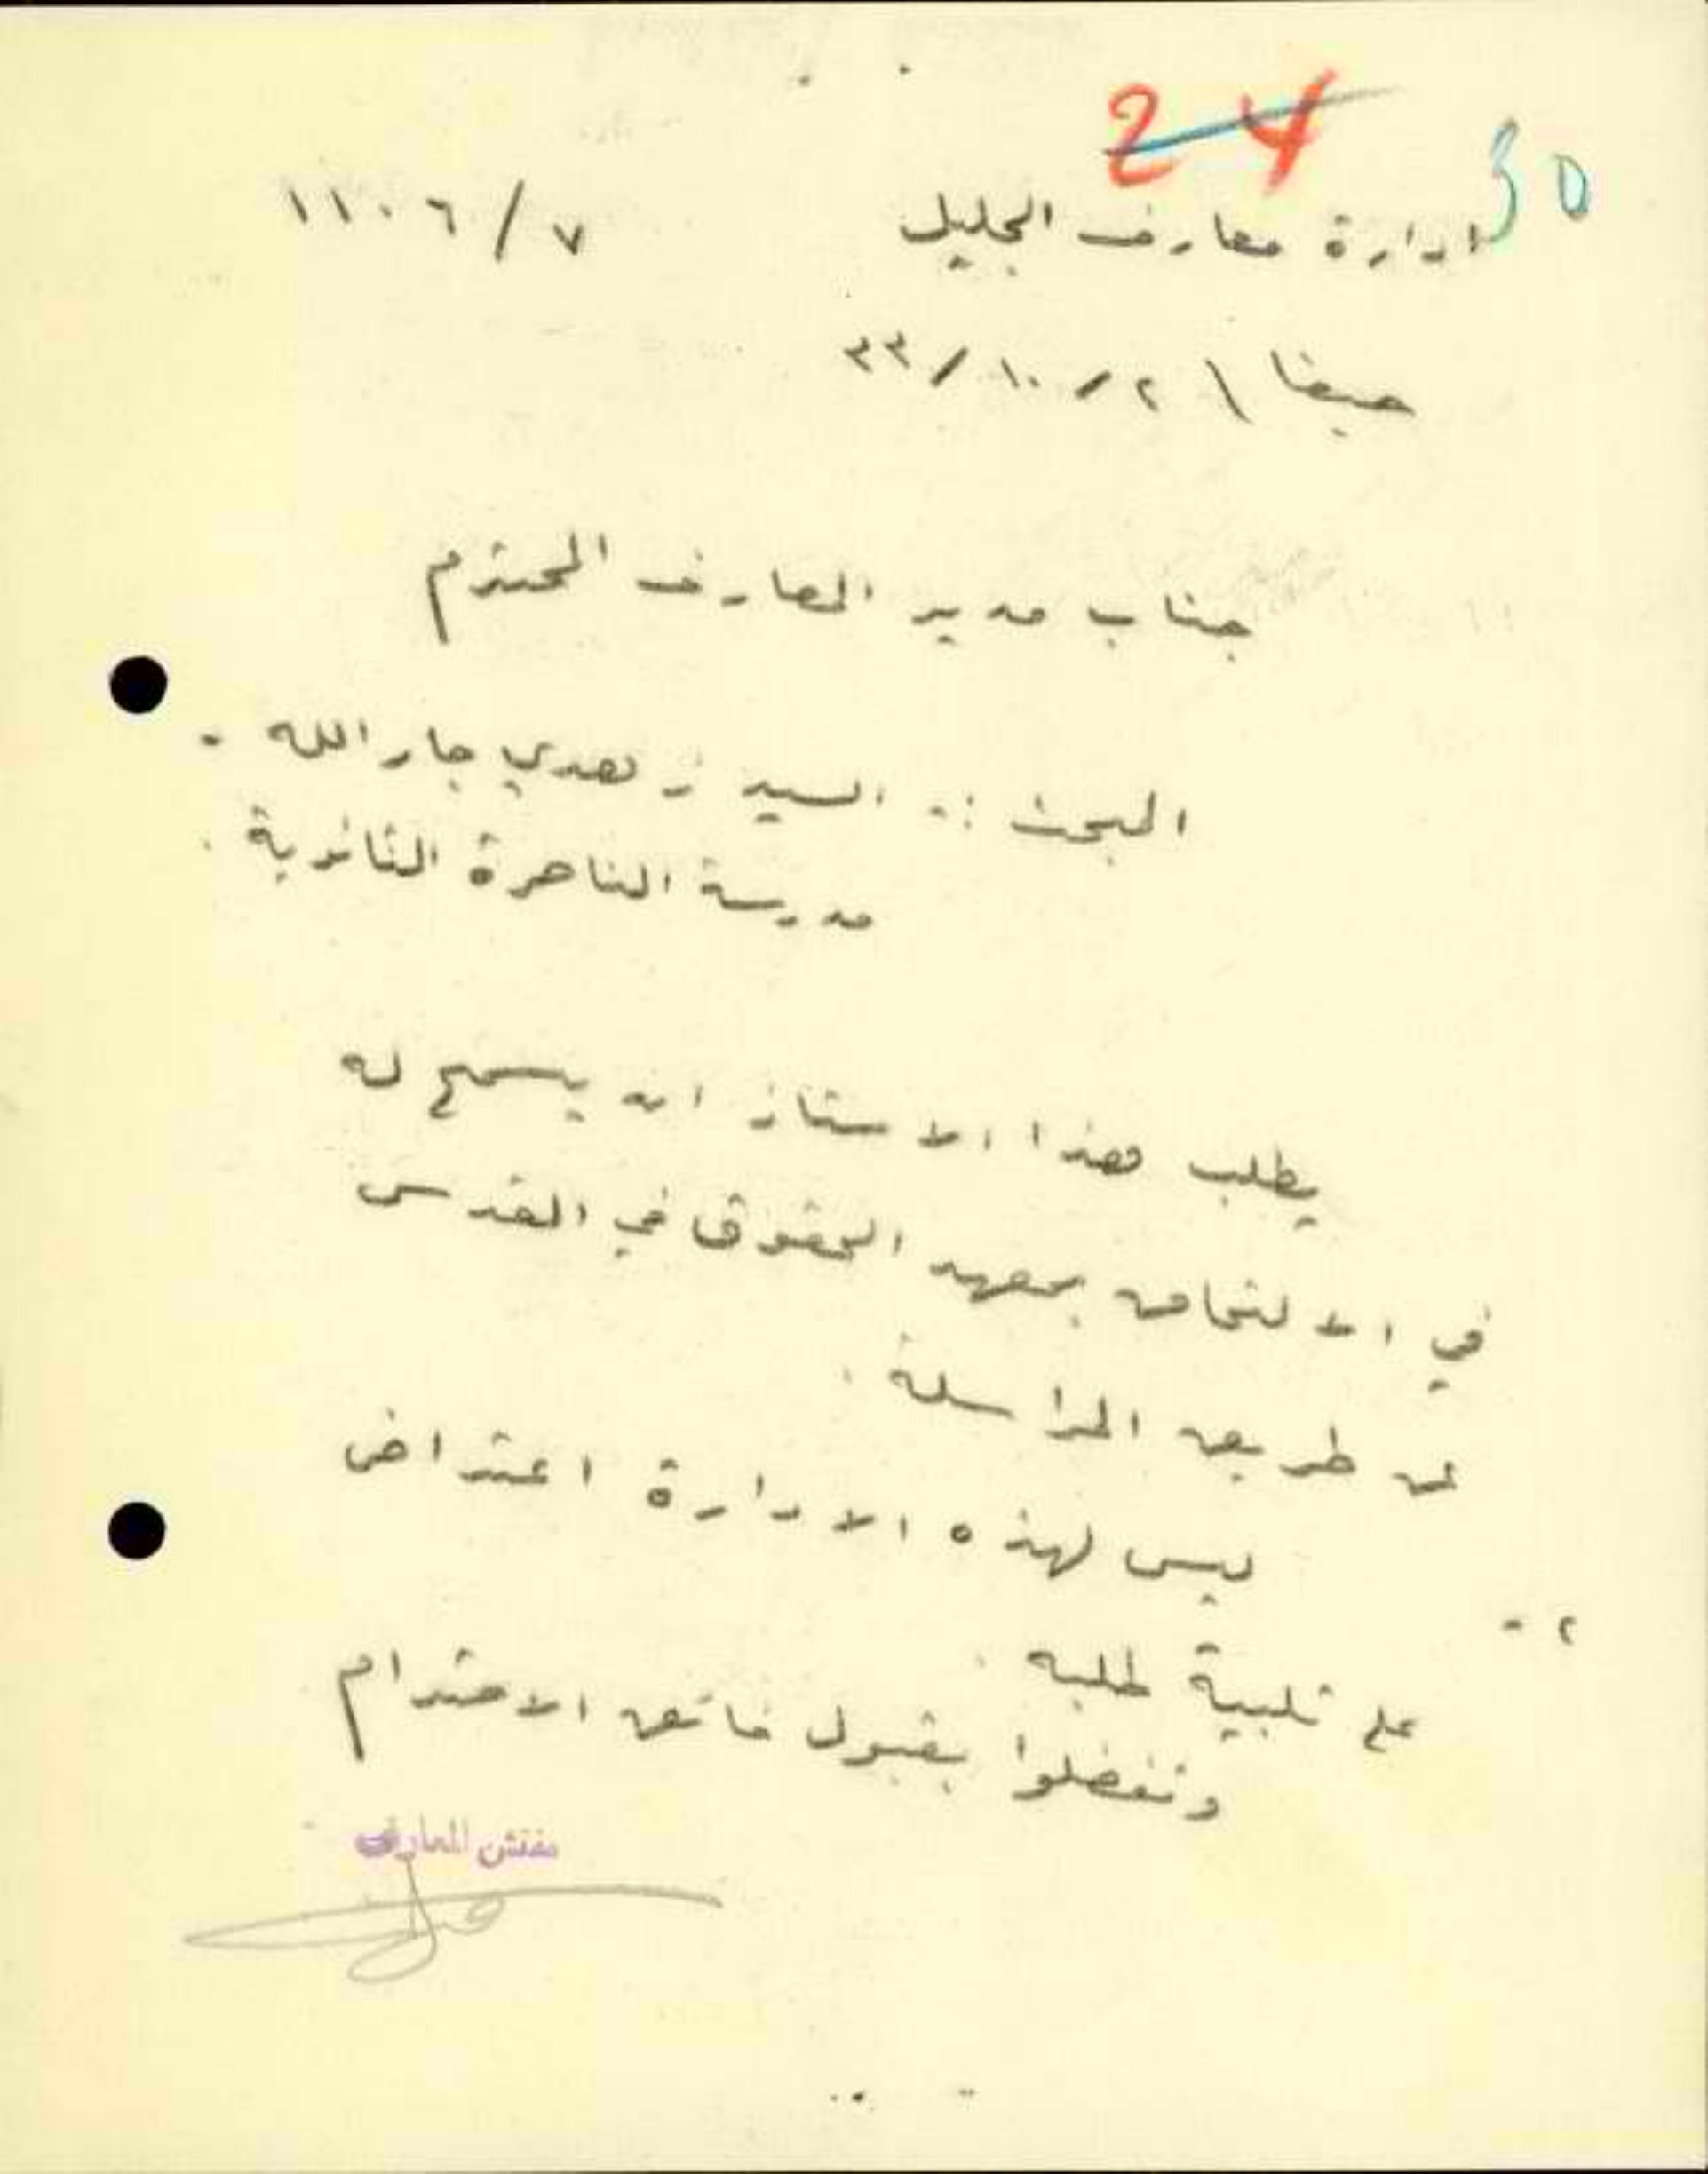 24
30
ادارة معارف الجليل
٧/١١٠٦
حيفا \ ٢/١٠/٣٣
جناب مدير المعارف المحترم
البحث :- السيد زهدي جار الله -
مدرسة الناصرة الثانوية .
يطلب هذا الاستاذ ان يسمح له
في الالتحاق بمعهد الحقوق في القدس
عن طريق المراسلة .
٢ - ليس لهذه الادارة اعتراض
على تلبية طلبه .
وتفضلوا بقبول فائق الاحترام
مفتش المعارف